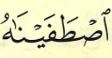 ٱصْطَفَيْنَٰهُ